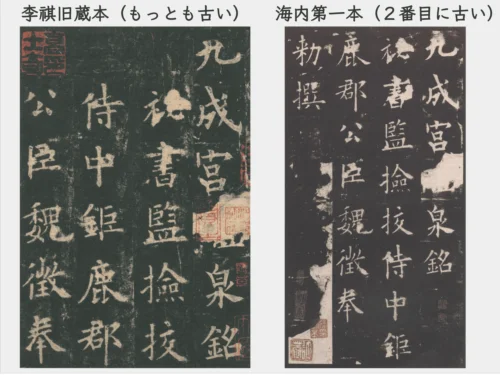 李祺旧蔵本（もっとも古い）
九成宮泉銘
祕書監撿挍
侍中鉅鹿郡
公臣魏徵奉
海内第一本（２番目に古い）
九成宮泉銘
祕書監撿挍侍中鉅
鹿郡公臣魏徵奉
勑撰